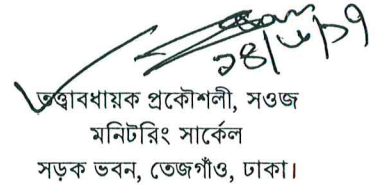 তত্ত্বাবধায়ক প্রকৌশলী, সওজ
মনিটরিং সার্কেল
সড়ক ভবন, তেজগাঁও, ঢাকা।